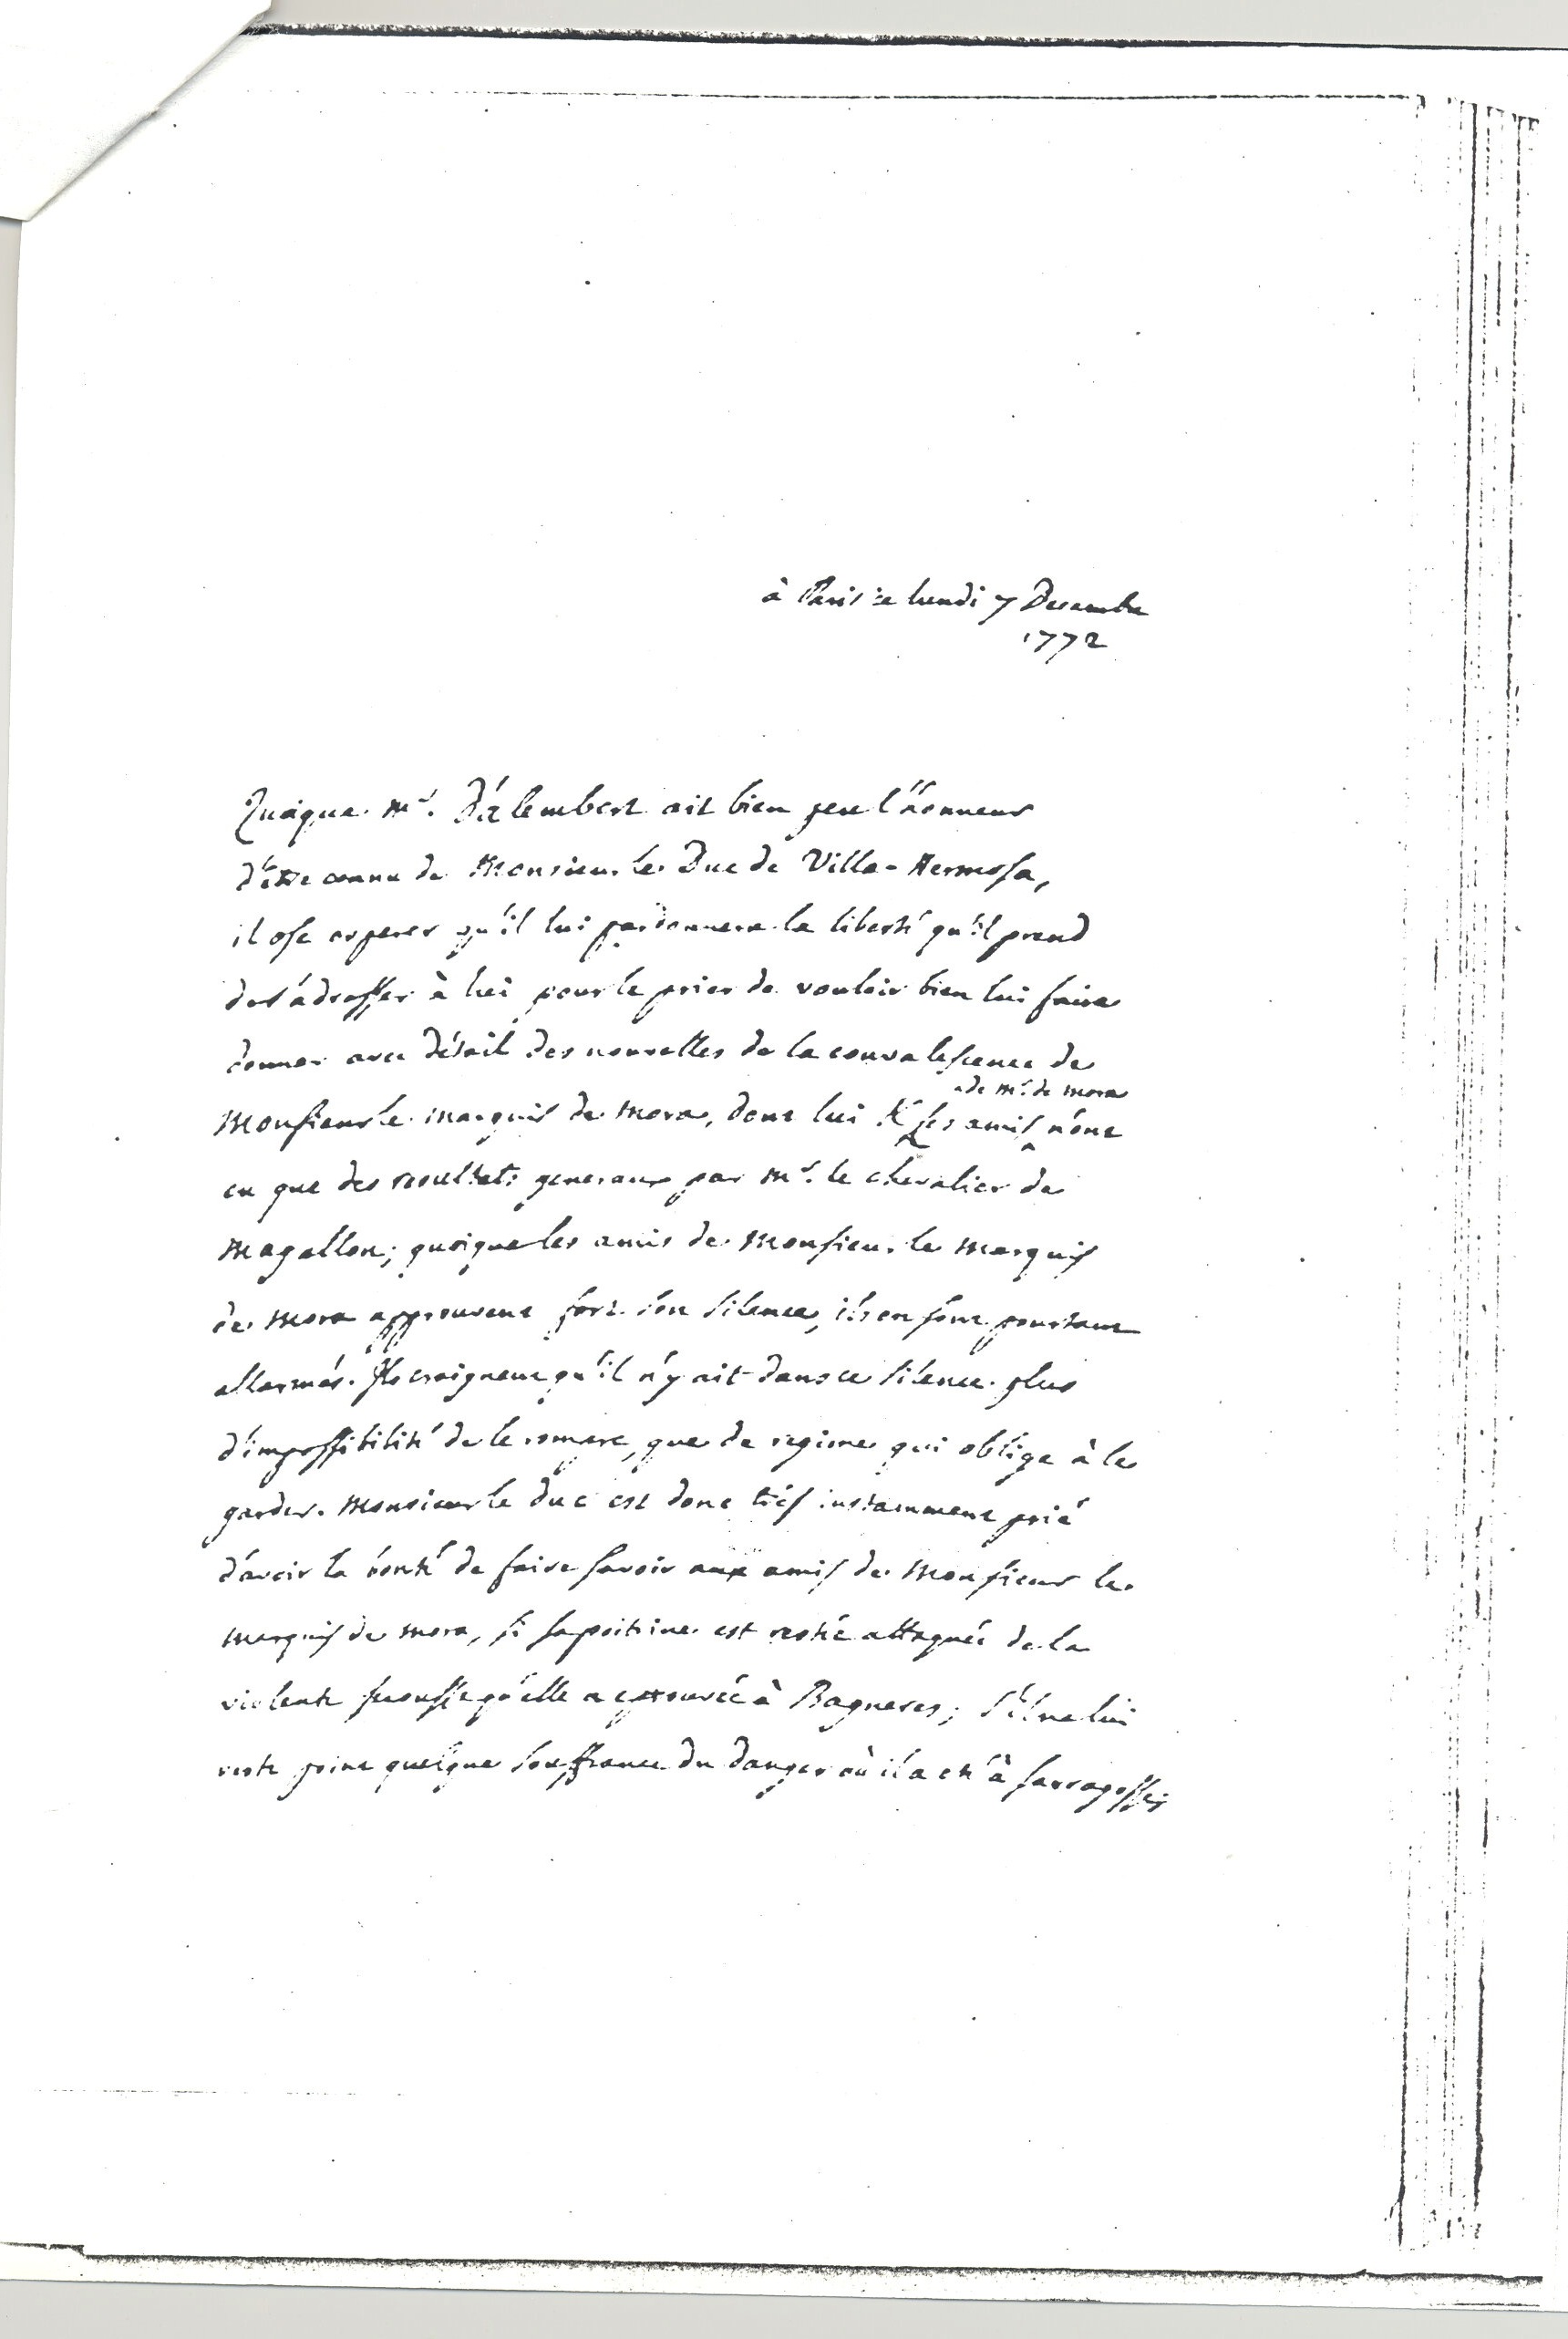 à Paris ce lundi 7 Decembre
1772
Quoique mr. D'alembert ait bien peu l'honneur
d'être connu de Monsieur le Duc de Villa-Hermosa,
il ose esperer qu'il lui pardonnera la liberté qu'il prend
de s'adresser à lui pour le prier de vouloir bien lui faire
donner avec détail des nouvelles de la convalescence de
de mr. de mora
Monsieur le marquis de Mora, dont lui & les amis n'ont
eu que des resultats generaux par mr. le chevalier de
Magallon; quoique les amis de Monsieur le Marquis
de Mora approuvent fort son silence, ils en sont pourtant
allarmés. Ils craignent qu'il n'y ait dans ce silence plus
d'impossibilité de le rompre, que de regime qui oblige à le
garder. Monsieur le duc est donc très instamment prié
d'avoir la bonté de faire savoir aux amis de Monsieur le
Marquis de Mora, si sa poitrine est restée attaquée de la
violente secousse qu'elle a eprouvée à Bagneres; s'il ne lui
reste point quelque souffrance du danger où il a eté à sarragosse;